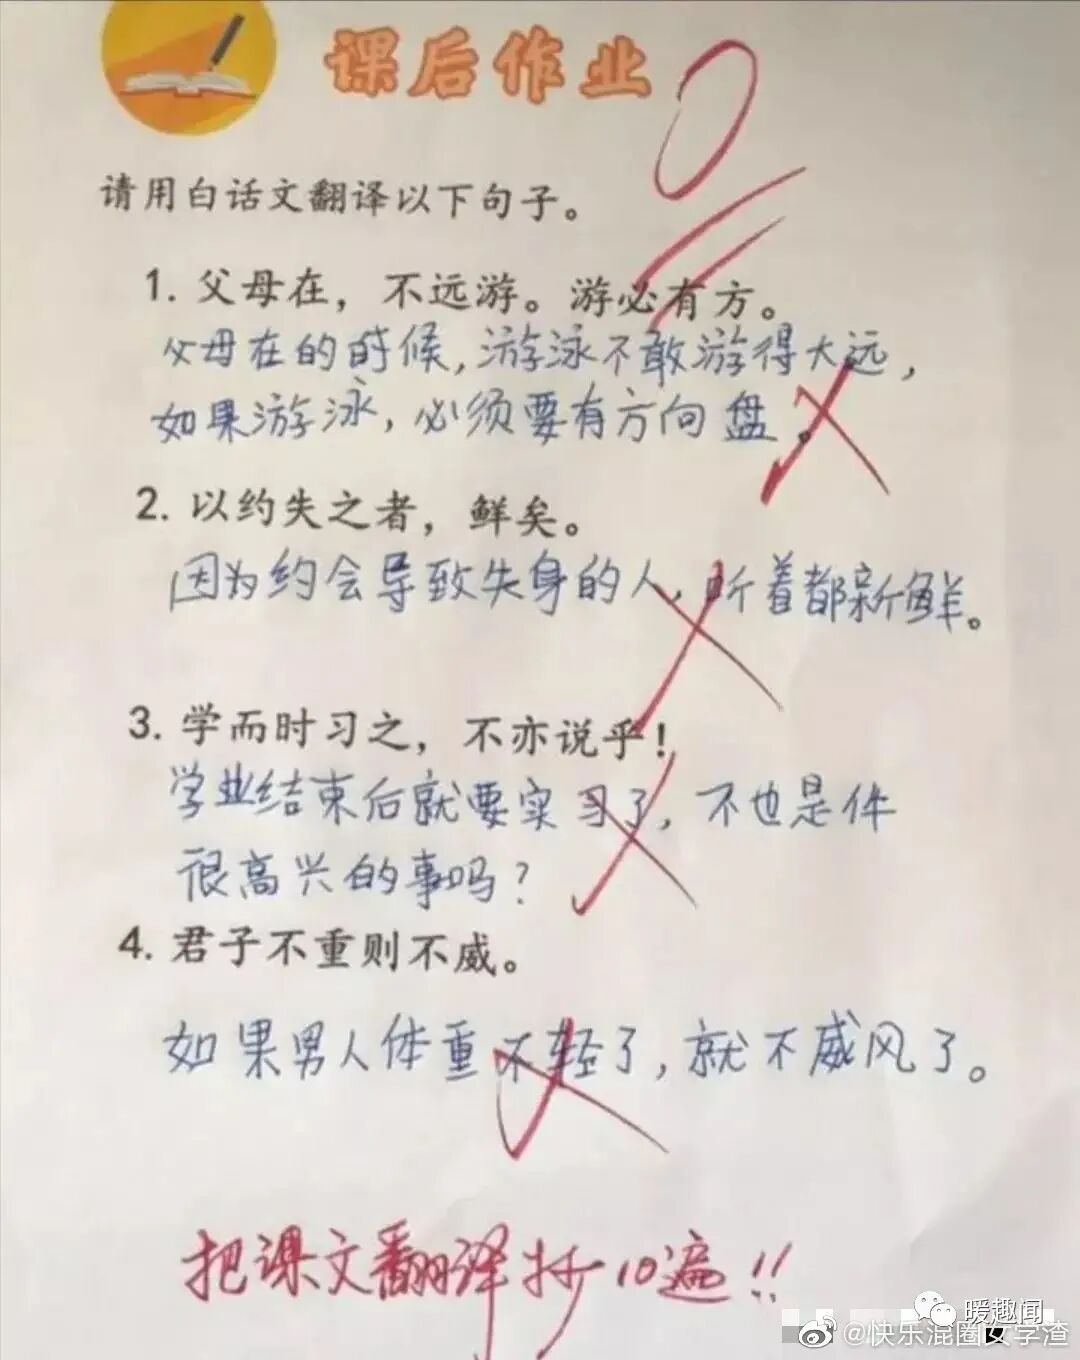 课后作业
0
请用白话文翻译以下句子。
1. 父母在，不远游。游必有方。
父母在的时候，游泳不敢游得大远，
如果游泳，必须要有方向盘。
2. 以约失之者，鲜矣。
因为约会导致失身的人，听着都新鲜。
3. 学而时习之，不亦说乎！
学业结束后就要实习了，不也是件
很高兴的事吗？
4. 君子不重则不威。
如果男人体重不轻了，就不威风了。
把课文翻译抄10遍!!
暖趣闻
@快乐混圈文学渣